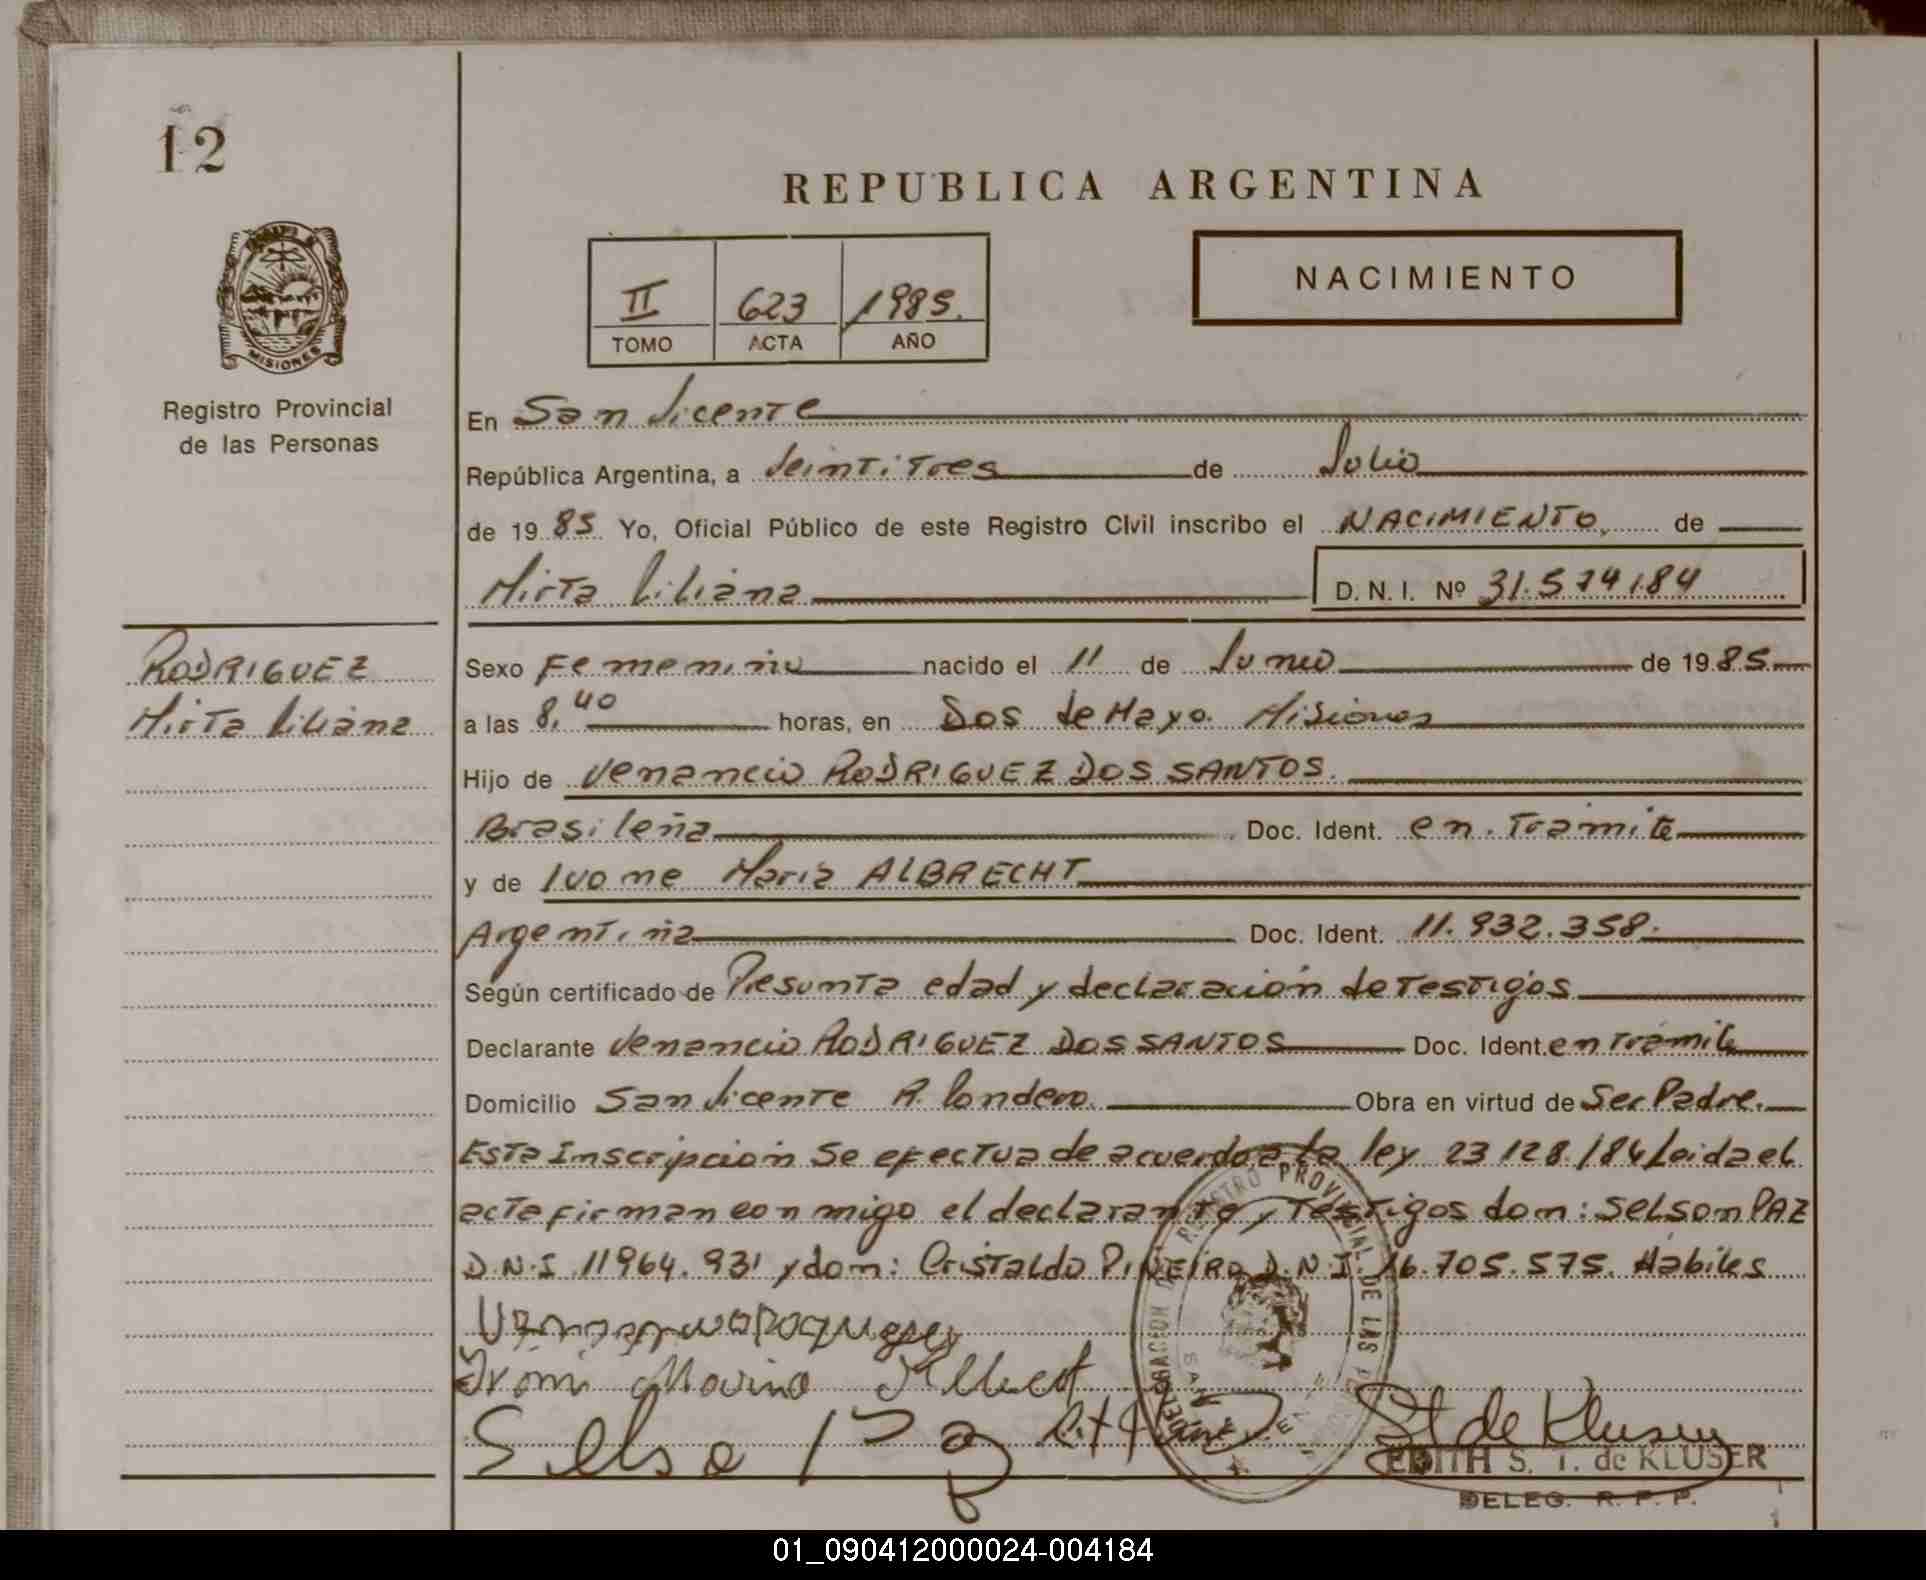 12
REPUBLICA ARGENTINA
NACIMIENTO
II 623 1985.
TOMO ACTA AÑO
MISIONES
Registro Provincial
de las Personas
En San Vicente
República Argentina, a Veintitres de Julio
de 19 85 Yo, Oficial Público de este Registro Civil inscribo el NACIMIENTO, de
Mirta Liliana D. N. I. Nº 31.574.184
RODRIGUEZ
Mirta Liliana
Sexo Femenino nacido el 11 de Junio de 19 85
a las 8,40 horas, en Dos de Mayo. Misiones
Hijo de Venancio RODRIGUEZ DOS SANTOS.
Brasileña Doc. Ident. en. Tramite
y de Ivone Maria ALBRECHT
Argentina Doc. Ident. 11.932.358.
Según certificado de Presunta edad y declaración de Testigos
Declarante Venancio RODRIGUEZ DOS SANTOS Doc. Ident. en Tramite
Domicilio San Vicente R. Londero. Obra en virtud de Ser Padre.
Esta Inscripción Se efectua de acuerdo a la ley 23128/84 Leida el
acta firman conmigo el declarante y Testigos don: Selson PAZ
D.N.I 11964.931 y don: Cristaldo PIÑEIRO D.N.I. 16.705.575. Hábiles
DELEGACION REGISTRO PROVINCIAL DE LAS
SAN
St de Kluser
EDITH S. T. de KLUSER
DELEG. R. P. P.
01_090412000024-004184